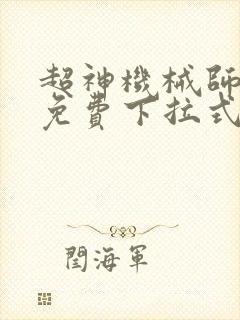 超神機械師
免費下拉式
閆海軍